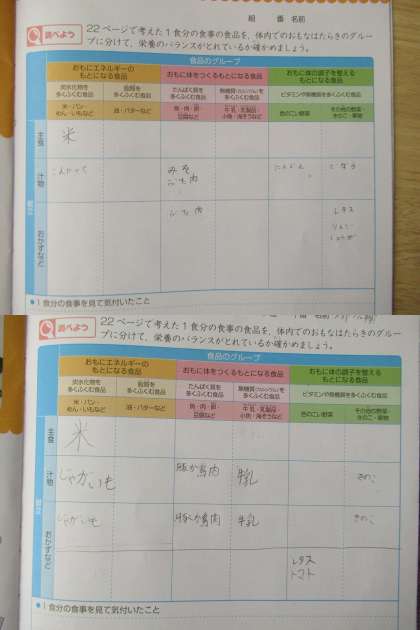 組 番 名前
調べよう
22ページで考えた1食分の食事の食品を、体内でのおもなはたらきのグルー
プに分けて、栄養のバランスがとれているか確かめましょう。
食品のグループ
おもにエネルギーの
もとになる食品
おもに体をつくるもとになる食品
おもに体の調子を整える
もとになる食品
炭水化物を
多くふくむ食品
脂質を
多くふくむ食品
たんぱく質を
多くふくむ食品
無機質(カルシウムなど)を
多くふくむ食品
ビタミンや無機質を多くふくむ食品
米・パン・
めん・いもなど
油・バターなど
魚・肉・卵・
豆腐など
牛乳・乳製品・
小魚・海そうなど
色のこい野菜
その他の野菜・
きのこ・果物
主食
米
汁物
こんにゃく
みそ
ぶた肉
にんじん
ごぼう
献立
おかずなど
ぶた肉
レタス
●1食分の食事を見て気付いたこと
調べよう
22ページで考えた1食分の食事の食品を、体内でのおもなはたらきのグルー
プに分けて、栄養のバランスがとれているか確かめましょう。
食品のグループ
おもにエネルギーの
もとになる食品
おもに体をつくるもとになる食品
おもに体の調子を整える
もとになる食品
炭水化物を
多くふくむ食品
脂質を
多くふくむ食品
たんぱく質を
多くふくむ食品
無機質(カルシウムなど)を
多くふくむ食品
ビタミンや無機質を多くふくむ食品
米・パン・
めん・いもなど
油・バターなど
魚・肉・卵・
豆腐など
牛乳・乳製品・
小魚・海そうなど
色のこい野菜
その他の野菜・
きのこ・果物
主食
米
汁物
じゃがいも
豚か鳥肉
牛乳
きのこ
献立
おかずなど
じゃがいも
豚か鳥肉
牛乳
きのこ
レタス
トマト
●1食分の食事を見て気付いたこと